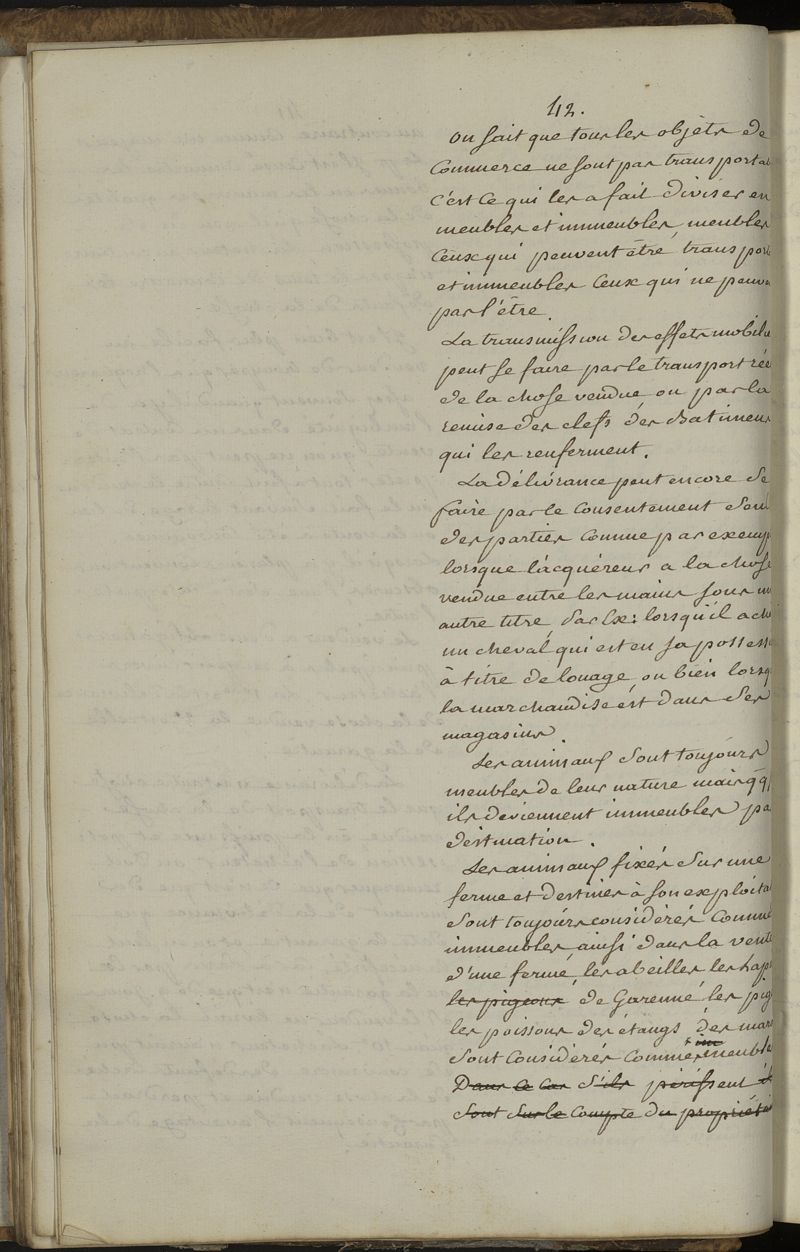 42.
on sait que tous les objèts de
Commerce ne sont pas transporta
c'est ce qui les a fait diviser en
meubles et immeubles, meubles
Ceux qui peuvent être transport
et immeubles Ceux qui ne peuve
pas l'être.
La transmission des effets mobilie
peut se faire par le transport rée
de la chose vendue ou par la
remise des clefs des Batimens
qui les renferment.
La délivrance peut encore se
faire par le Consentement seul
des parties Comme par exemp
lorsque l'acquéreur a la chose
vendue entre les mains sous un
autre titre, Par Ex: lorsqu'il achè
un cheval qui est en sa possessi
à titre de louage, ou bien lorsq
la marchandise est dans Ses
magasins.
Les animaux sont toujours
meubles de leur nature mais qq
ils deviennent immeubles pa
destination.
Les animaux fixés Sur une
ferme et destinés à son exploita
Sont toujours considérés Comme
immeubles, ainsi dans la vente
d'une ferme, les abeilles les lap
les pigeons de Garenne, les pig
les poissons des étangs des mar
Sont Considérés Comme immeubles
Dans ce cas S'ils périssent
Sont Sur le Compte du propriétai